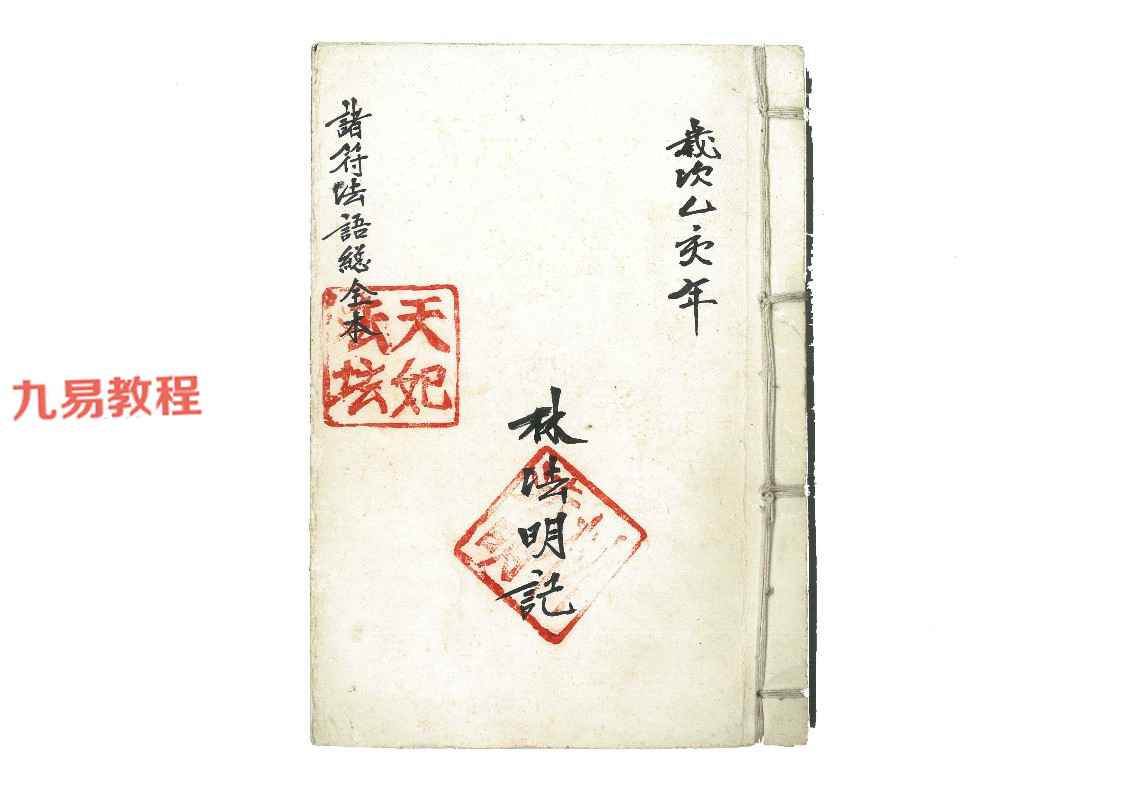 歲次乙亥年
林法明記
諸符法語總全本
天妃
法坛
九易教程